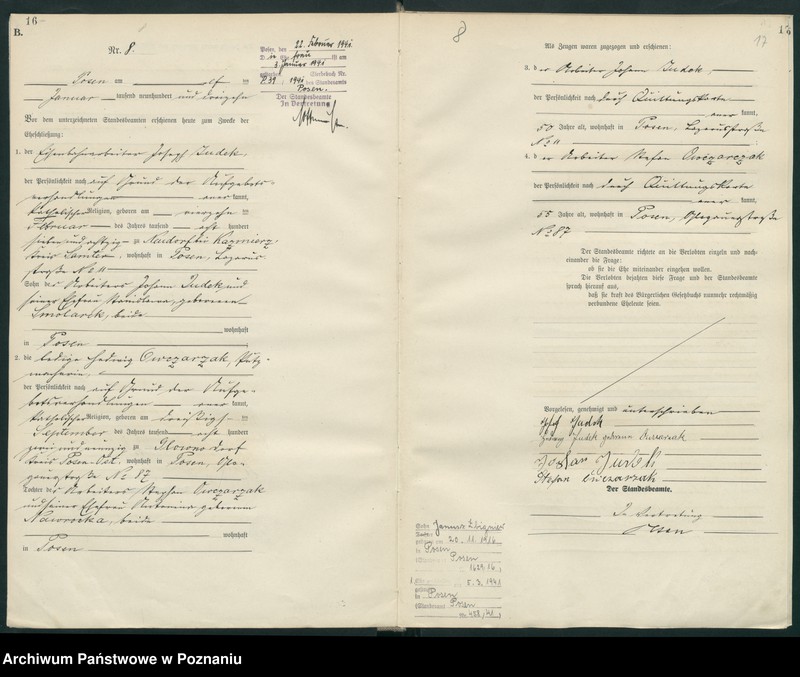 16
B.
Nr. 8.
Posen, den 22. Februar 1941
Die Ehefrau ist am
3. Januar 1941
Sterbebuch Nr.
1941 des Standesamts
Posen.
Der Standesbeamte
In Vertretung
Posen am elf ten
Januar tausend neunhundert und dreizehn
Vor dem unterzeichneten Standesbeamten erschienen heute zum Zwecke der
Eheschließung:
1. der Eisenbahnarbeiter Joseph Judek,
der Persönlichkeit nach auf Grund der Aufgebots-
verhandlungen kannt,
katholischer Religion, geboren am vierzehn ten
Februar des Jahres tausend acht hundert
sieben und achtzig zu Neudorf
Kreis, wohnhaft in Posen, Lazarus-
straße No 11
Sohn des Arbeiters Johann Judek und
seiner Ehefrau, geborenen
Smolarek, beide
wohnhaft
in Posen
2. die ledige Hedwig Owczarzak, Putz-
macherin,
der Persönlichkeit nach auf Grund der Aufge-
botsverhandlungen kannt,
katholischer Religion, geboren am dreißigsten
September des Jahres tausend acht hundert
zwei und neunzig zu Glowno Dorf
Kreis Posen-Ost, wohnhaft in Posen,
No 87
Tochter des Arbeiters Stephan Owczarzak
und seiner Ehefrau Antonina geborenen
Nawrocka, beide
wohnhaft
in Posen
8
17
Als Zeugen waren zugezogen und erschienen:
3. der Arbeiter Johann Judek,
der Persönlichkeit nach durch Quittungskarte
kannt,
50 Jahre alt, wohnhaft in Posen, Lazarusstraße
No 11
4. der Arbeiter Stefan Owczarzak
der Persönlichkeit nach durch Quittungskarte
kannt,
55 Jahre alt, wohnhaft in Posen,
No 87
Der Standesbeamte richtete an die Verlobten einzeln und nach-
einander die Frage:
ob sie die Ehe miteinander eingehen wollen.
Die Verlobten bejahten diese Frage und der Standesbeamte
sprach hierauf aus,
daß sie kraft des Bürgerlichen Gesetzbuchs nunmehr rechtmäßig
verbundene Eheleute seien.
Vorgelesen, genehmigt und unterschrieben
Judek
Judek geborene Owczarzak
Johan Judek
Stefan Owczarzak
Der Standesbeamte.
In Vertretung
Sohn Janusz Zbigniew
20. 11. 1916
in Posen
Posen
1629/16
5. 3. 1941
in Posen
Posen
Archiwum Państwowe w Poznaniu